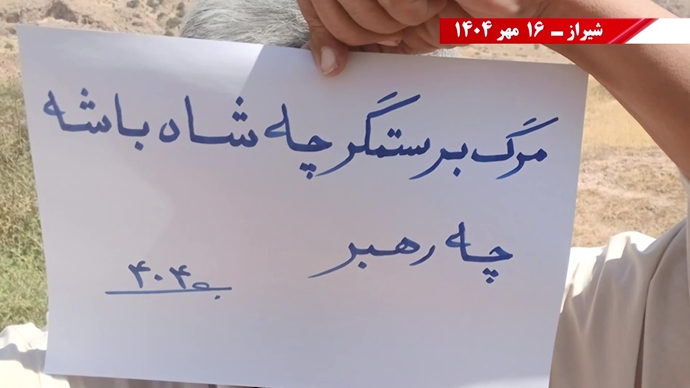 شیراز ـ ۱۶ مهر ۱۴۰۴
مرگ بر ستمگر چه شاه باشه
چه رهبر